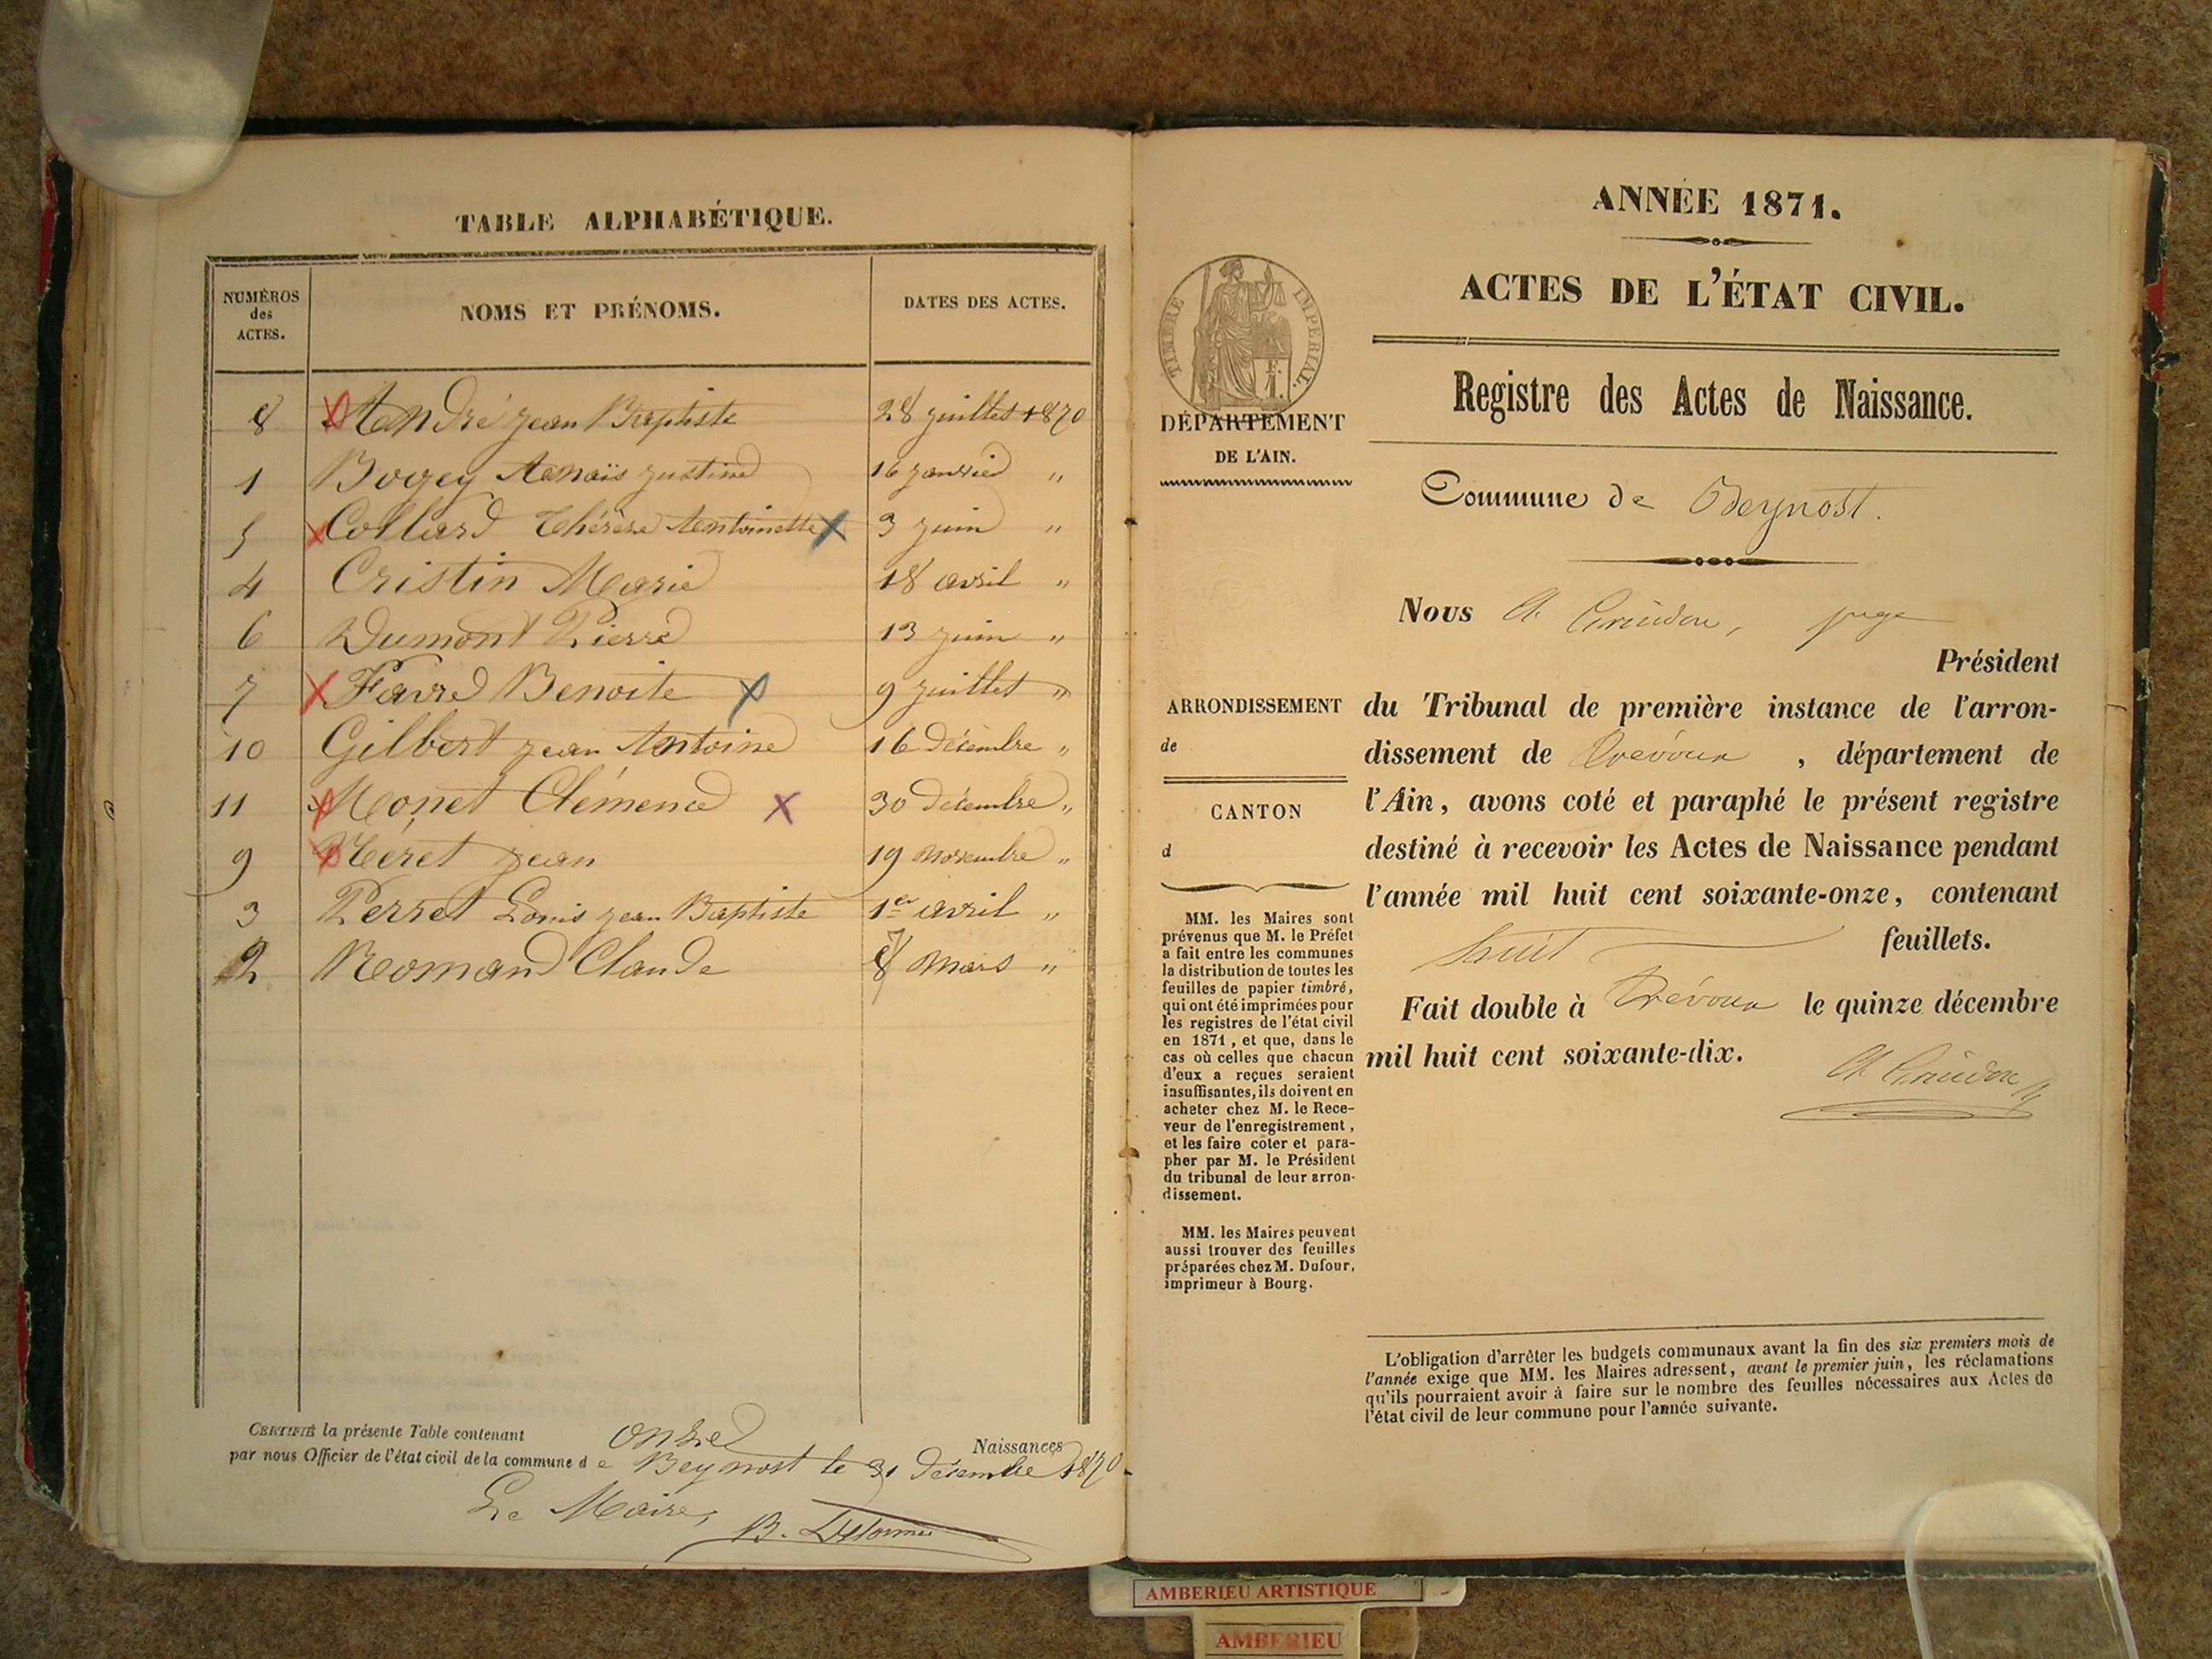 TABLE ALPHABÉTIQUE.
NUMÉROS des ACTES.
NOMS ET PRÉNOMS.
DATES DES ACTES.
8 André jean Baptiste 28 juillet 1870
1 Bogey Anaïs justine 16 janvier "
5 Collard Thérèse Antoinette 3 juin "
4 Cristin Marie 18 avril "
6 Dumont Pierre 13 juin "
7 Favre Benoite 9 juillet "
10 Gilbert jean Antoine 16 Décembre "
11 Monet Clémence 30 Décembre "
9 Néret jean 19 novembre "
3 Perret Louis jean Baptiste 1er avril "
2 Romand Claude mars "
CERTIFIÉ la présente Table contenant onze Naissances
par nous Officier de l'état civil de la commune de Beynost le 31 Décembre 1870.
Le Maire,
B. Delorme
ANNÉE 1871.
ACTES DE L'ÉTAT CIVIL.
Registre des Actes de Naissance.
TIMBRE IMPÉRIAL.
DÉPARTEMENT
DE L'AIN.
Commune de Beynost.
Nous juge
Président
ARRONDISSEMENT
de
CANTON
d
du Tribunal de première instance de l'arron-
dissement de Trévoux, département de
l'Ain, avons coté et paraphé le présent registre
destiné à recevoir les Actes de Naissance pendant
l'année mil huit cent soixante-onze, contenant
huit feuillets.
Fait double à Trévoux le quinze décembre
mil huit cent soixante-dix.
MM. les Maires sont
prévenus que M. le Préfet
a fait entre les communes
la distribution de toutes les
feuilles de papier timbré,
qui ont été imprimées pour
les registres de l'état civil
en 1871, et que, dans le
cas où celles que chacun
d'eux a reçues seraient
insuffisantes, ils doivent en
acheter chez M. le Rece-
veur de l'enregistrement,
et les faire coter et para-
pher par M. le Président
du tribunal de leur arron-
dissement.
MM. les Maires peuvent
aussi trouver des feuilles
préparées chez M. Dufour,
imprimeur à Bourg.
L'obligation d'arrêter les budgets communaux avant la fin des six premiers mois de
l'année exige que MM. les Maires adressent, avant le premier juin, les réclamations
qu'ils pourraient avoir à faire sur le nombre des feuilles nécessaires aux Actes de
l'état civil de leur commune pour l'année suivante.
AMBERIEU ARTISTIQUE
AMBERIEU